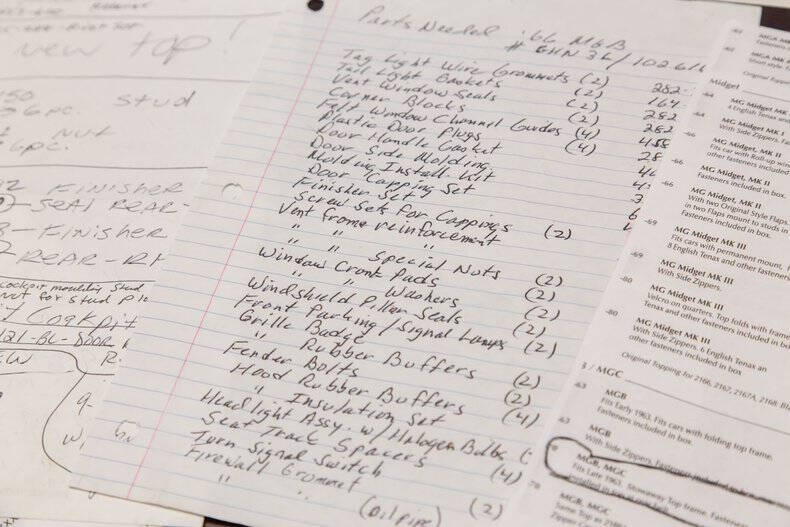 new top!
stud
6 pc.
nut
6 pc.
FINISHER
SEAL REAR-
FINISHER
REAR-RH
cockpit moulding stud
nut for stud
Cockpit
Parts Needed : 66 MGB
# GHN 3L/
Tag Light Wire Grommets (2) 282-
Tail Light Gaskets (2) 164
Vent Window Seals (2) 282
Corner Blocks (2) 282
Felt Window Channel Guides (4)
Plastic Door Plugs (4)
Door Handle Gasket
Door Side Molding
Molding Install Kit
Door Capping Set
Finisher Set
Screw Sets for Cappings
Vent frame reinforcement (2)
" " " Special Nuts (2)
" " " Washers (2)
Window Crank Pads (2)
Windshield Pillar Seals (2)
Front Parking/Signal Lamps (2)
Grille Badge
" Rubber Buffers (2)
Fender Bolts (2)
Hood Rubber Buffers (4)
" Insulation Set
Headlight Assy. w/Halogen Bulbs
Seat Track Spacers (4)
Turn Signal Switch
Firewall Grommet (2)
" " (oil pipe)
Midget
-64
MG Midget MK
4 English Tenax and
MG Midget MK I
With Side Zippers.
-66
MG Midget, MK II
Fits car with Roll-up
other fasteners included
MG Midget, MK II
Fasteners included in box.
-66
MG Midget, MK II
With two Original Style Flaps.
in two Flaps mount to studs in
Fasteners included in box.
-69
MG Midget MK III
Fits cars with permanent mount.
8 English Tenax and other fasteners
-69
MG Midget MK III
With Side Zippers.
-80
MG Midget MK III
Velcro on quarters. Top folds with frame
Tenax and other fasteners included in
-80
MG Midget MK III
With Side Zippers. 6 English Tenax an
other fasteners included in box
Original Topping for 2166, 2167, 2167A, 2168
/ MGC
-63
MGB
Fits Early 1963. Fits cars with folding top frame.
Fasteners included in box.
63
MGB
With Side Zippers. Fasteners included
MGB, MGC
Fits Late 1963. Stowaway Top frame. Fasteners
MGB, MGC